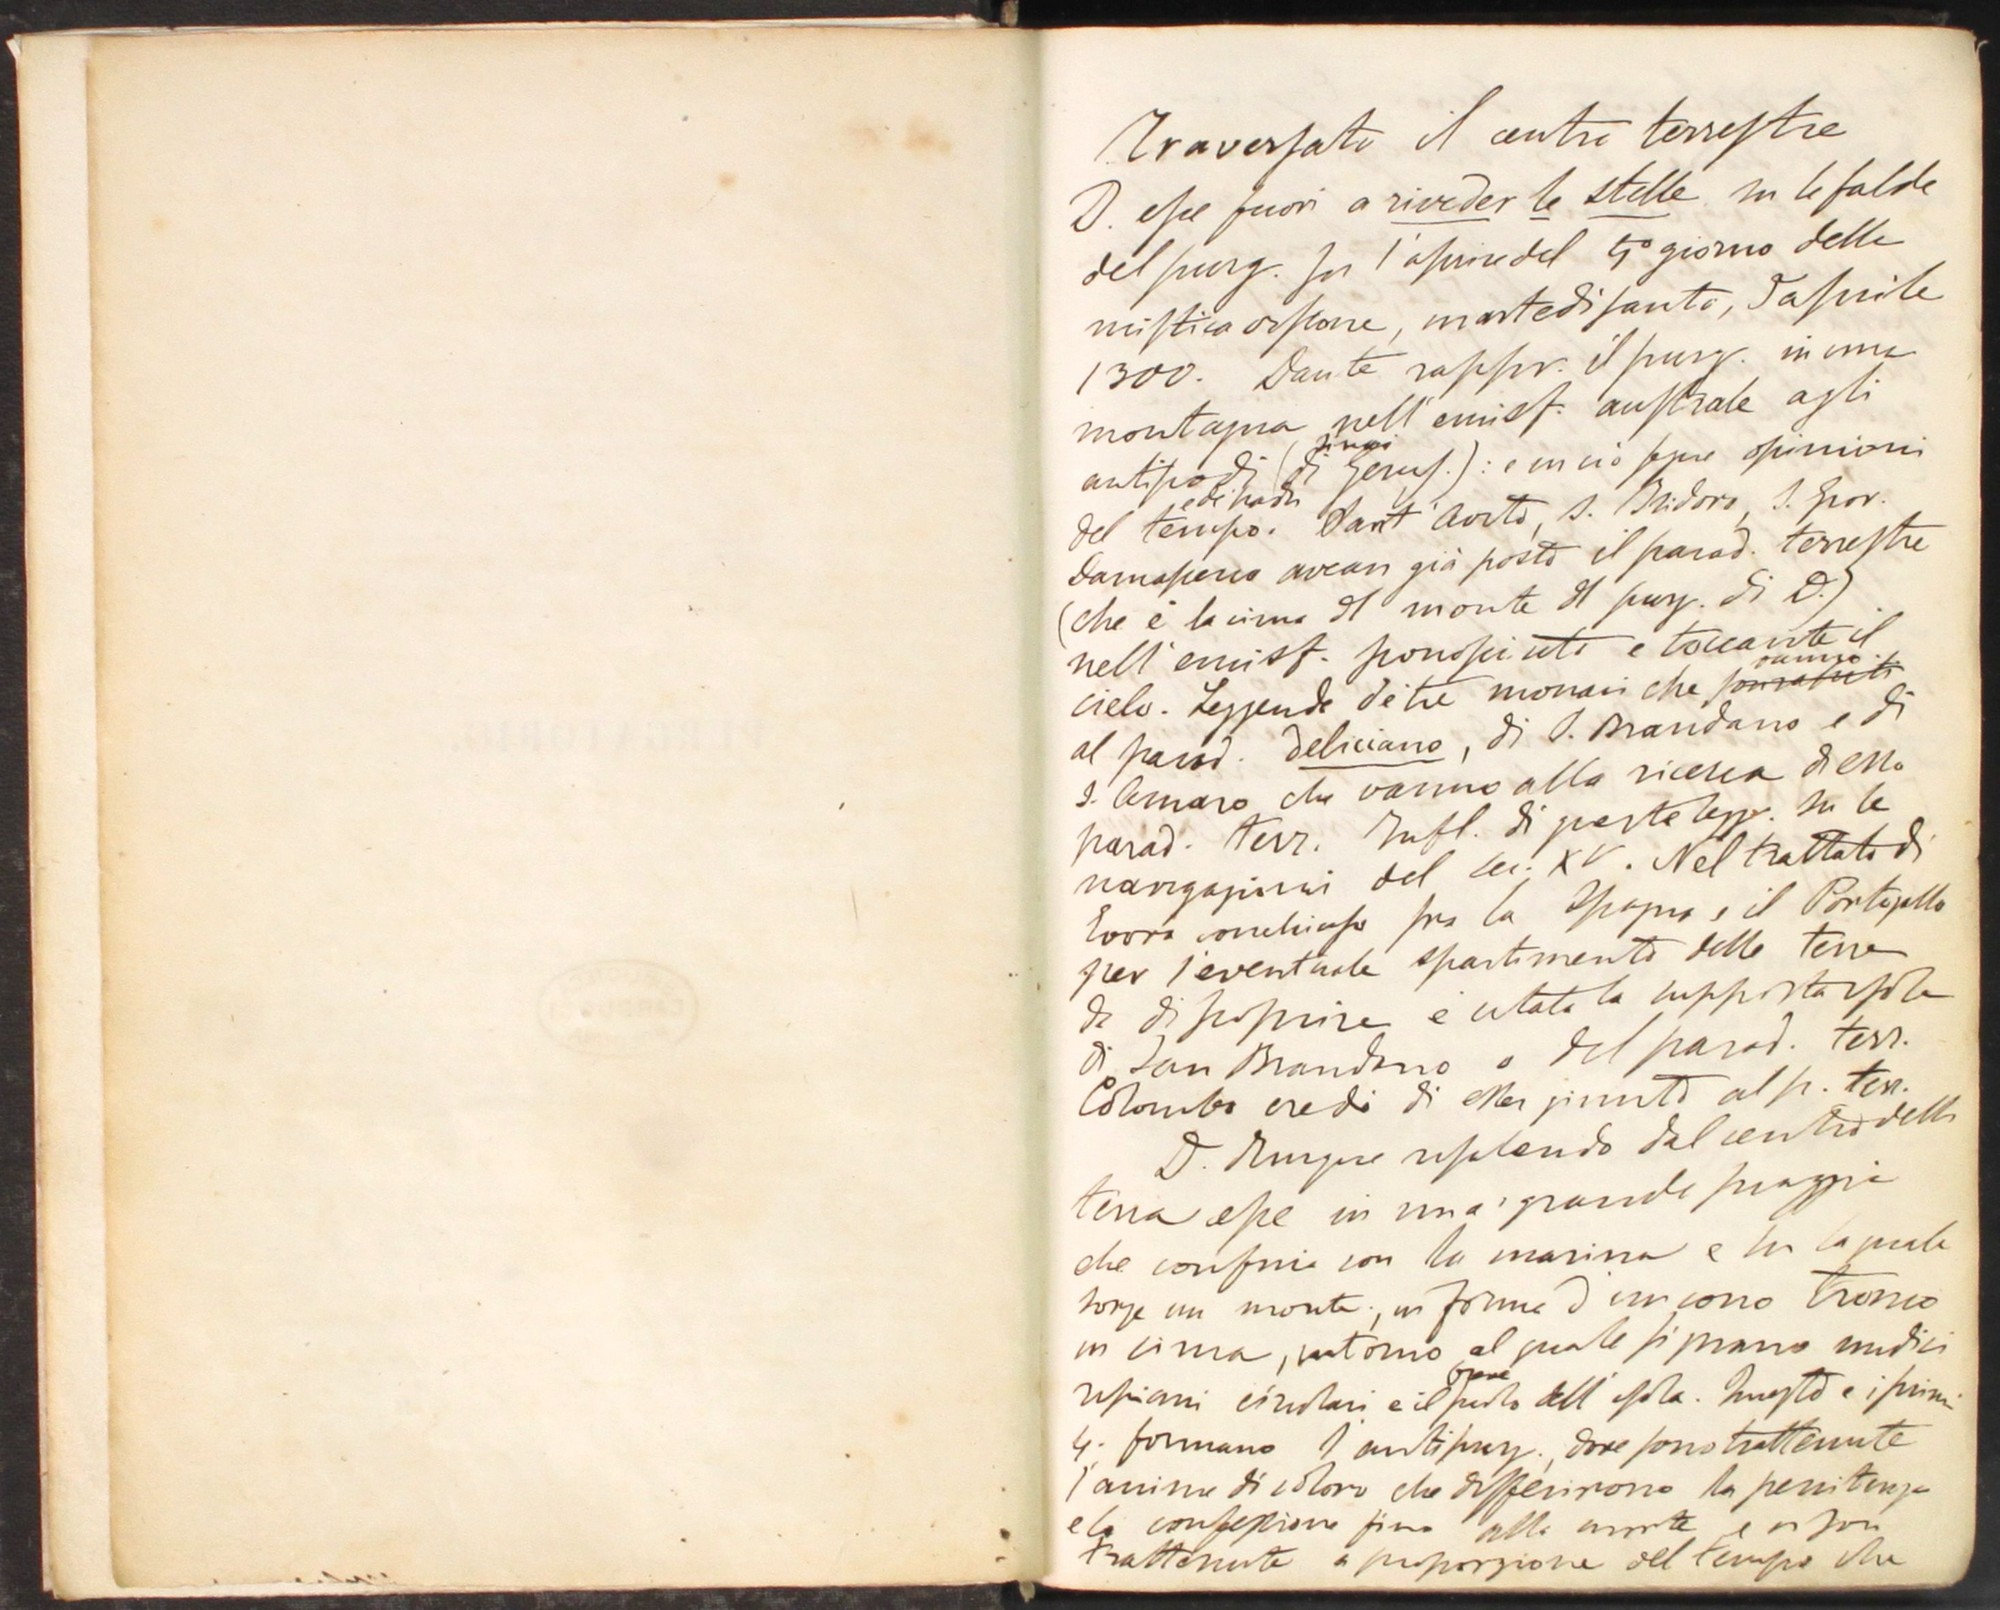 Traversato il centro terrestre
D. esce fuori a riveder le stelle su le falde
del purg. su l'aprire del 5° giorno della
mistica visione, martedì santo, d'aprile
1300. Dante rappr. il purg. in una
montagna nell'emisf. australe agli
antipodi (di Gerus.): e in ciò segue opinioni
del tempo. Sant'Avito, S. Isidoro, S. Giov.
Damasceno avean già posto il parad. terrestre
(che è la cima d monte d purg. di D.)
nell'emisf. sconosciuto e toccante il
cielo. Leggende de' tre monaci che vanno
al parad. deliciano, di S. Brandano e di
S. Amaro che vanno alla ricerca di esso
parad. terr. Infl. di queste legg. su le
navigazioni del sec. XV. Nel trattato di
Evora conchiuso fra la Spagna e il Portogallo
per l'eventuale spartimento delle terre
da discoprire è citata la supposta isola
di San Brandano o del parad. terr.
Colombo credé di esser giunto al p. terr.
D. dunque uscendo dal centro della
terra esce in una grande piaggia
che confina con la marina e su la quale
sorge un monte, in forma d'un cono tronco
in cima, intorno al quale si girano undici
ripiani circolari e il suolo dell'isola. Questo e i primi
4. formano l'antipurg., dove sono trattenute
l'anime di coloro che differirono la penitenza
e la confessione fino alla morte, e vi son
trattenute a proporzione del tempo che